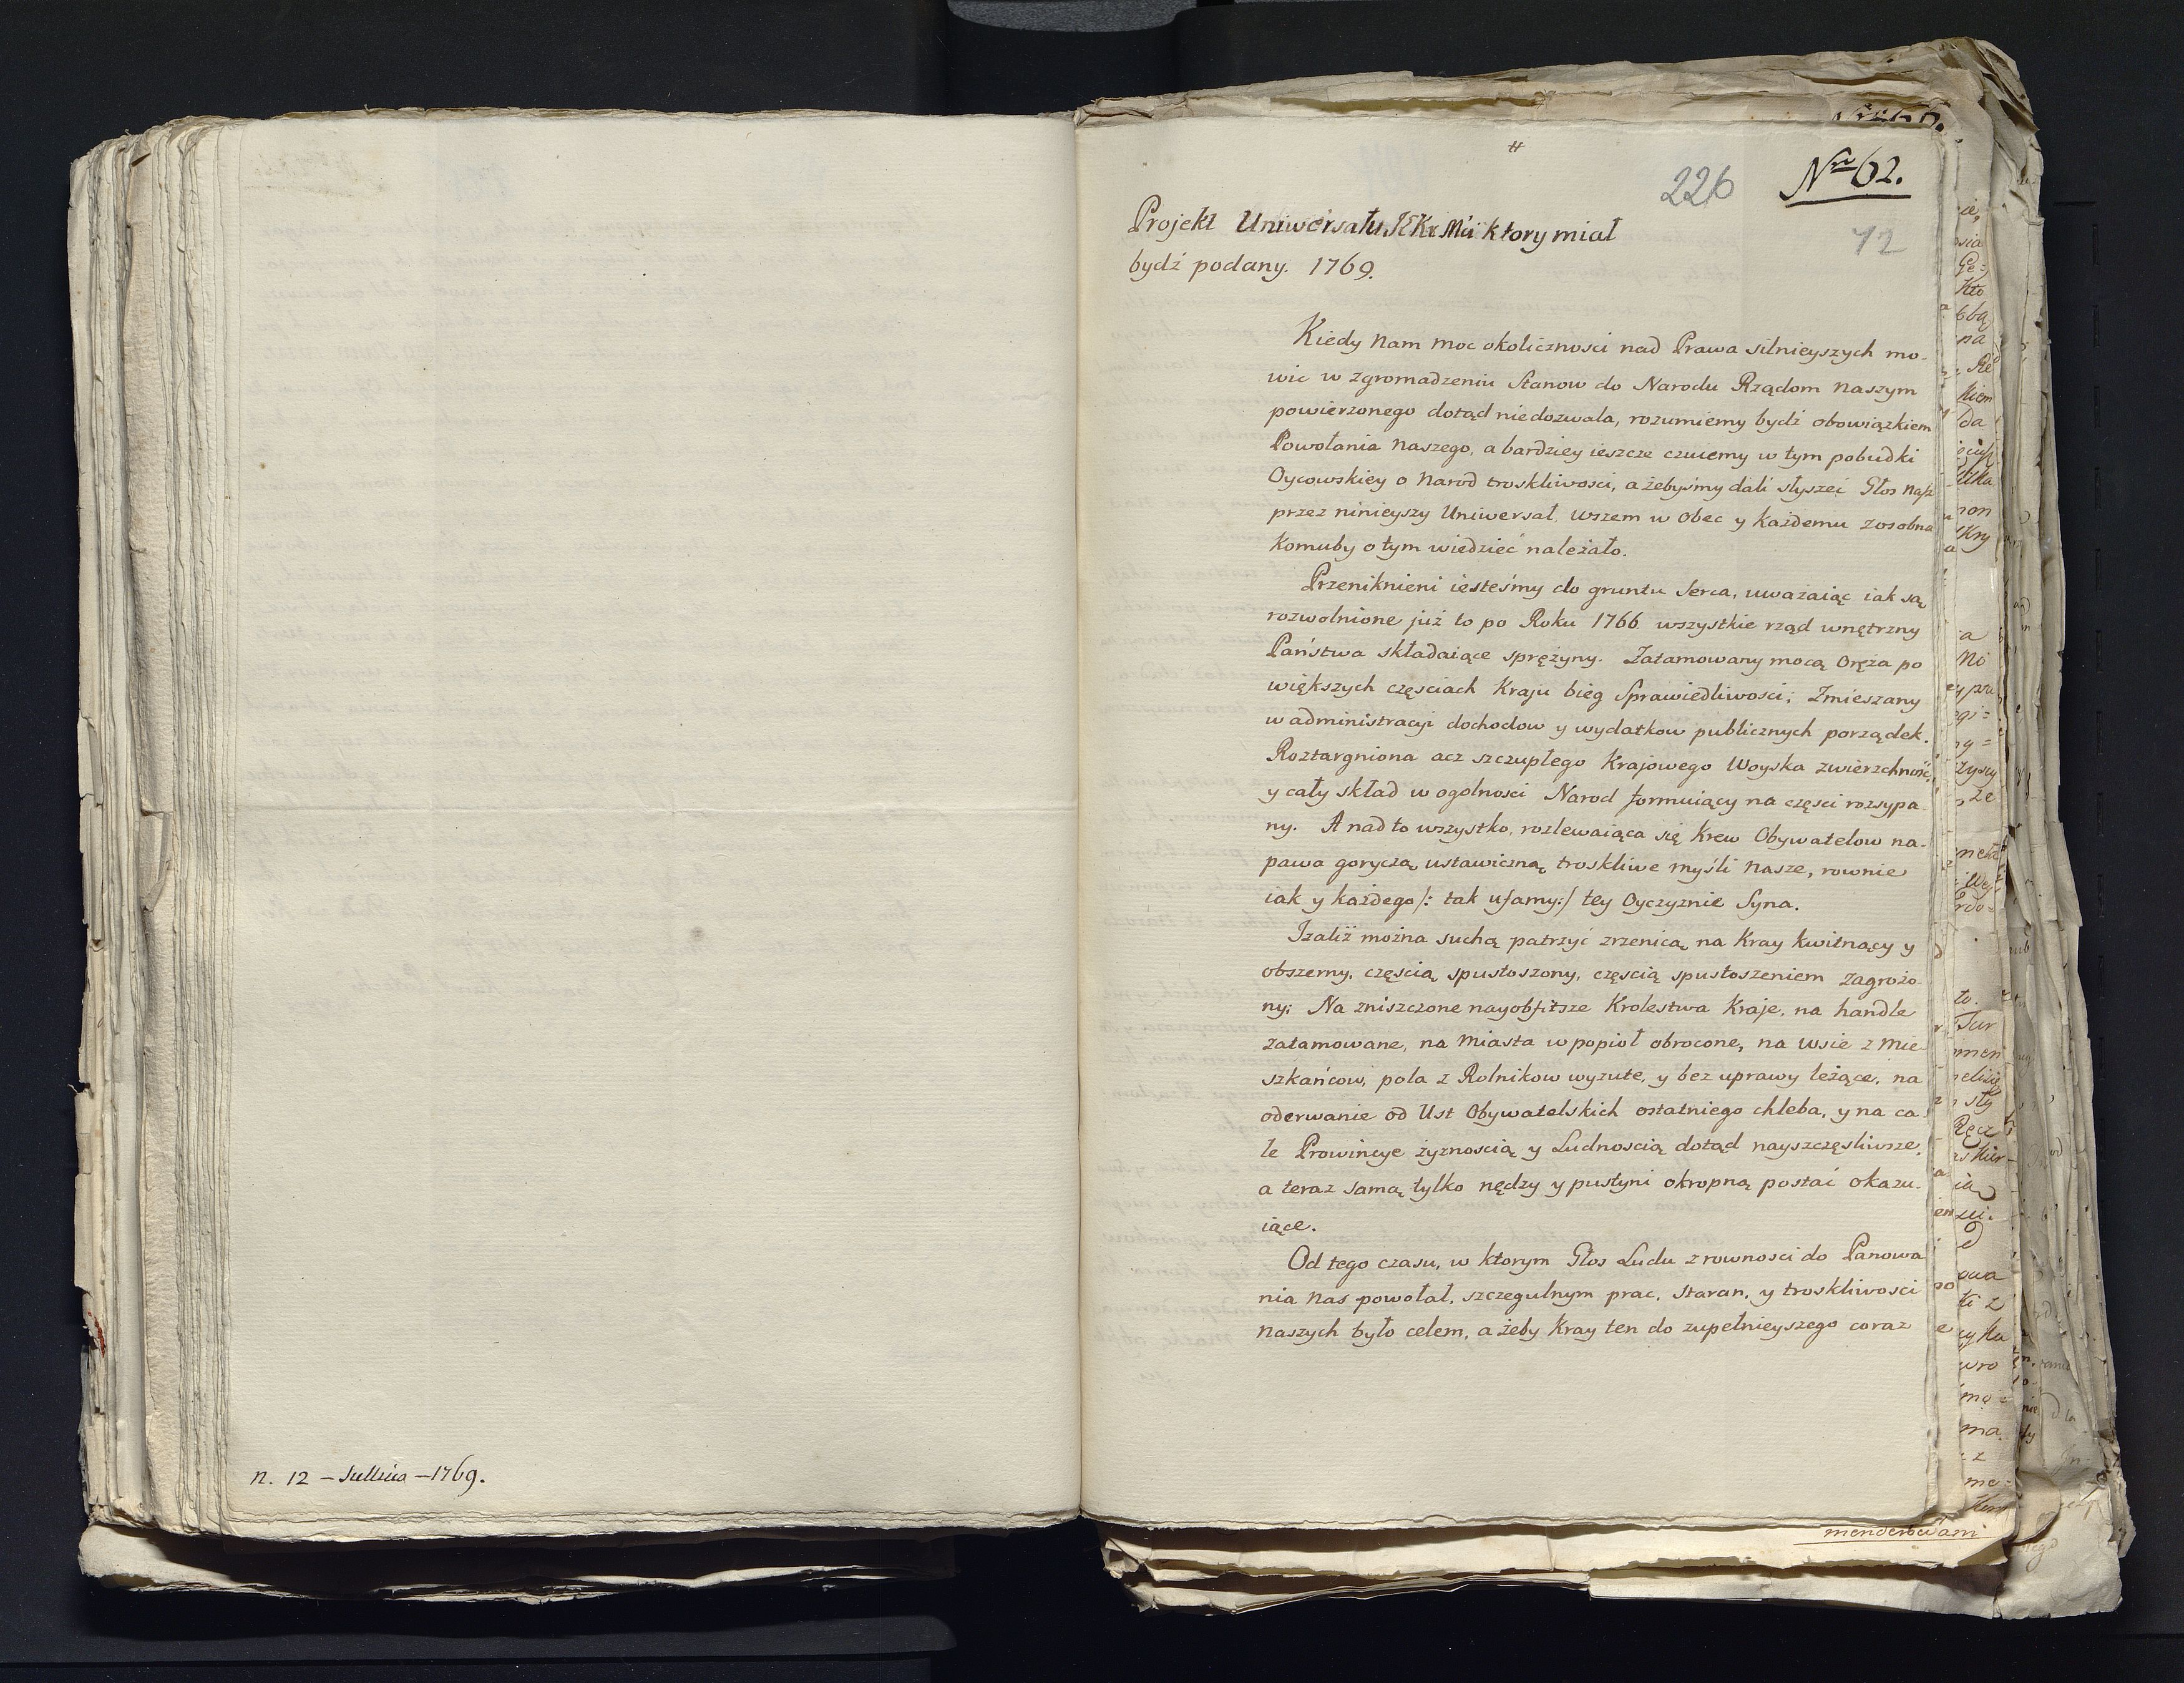 n. 12 — Julliia — 1769.
#
226
Nro 62.
72
Projekt Uniwersału JKKr Mci ktory miał
bydź podany. 1769.
Kiedy Nam moc okolicznosci nad Prawa silnieyszych mo-
wic w zgromadzeniu Stanow do Narodu Rządom Naszym
powierzonego dotąd niedozwala, rozumiemy bydź obowiązkiem
Powołania Naszego, a bardziey ieszcze czuiemy w tym pobudki
Oycowskiey o Narod troskliwosci, ażebyśmy dali słyszeć Głos Nasz
przez ninieyszy Uniwersał, wszem w Obec y każdemu zosobna
komuby o tym wiedzieć należało.
Przeniknieni iesteśmy do gruntu Serca, uważaiąc iak są
rozwolnione już to po Roku 1766 wszystkie rząd wnętrzny
Państwa składaiące sprężyny. Zatamowany mocą Oręża po
większych częsciach Kraju bieg Sprawiedliwosci; Zmieszany
w administracyi dochodow y wydatkow publicznych porządek.
Roztargniona acz szczupłego Krajowego Woyska zwierzchność,
y cały skład w ogolnosci Narod formuiący na częsci rozsypa-
ny. A nad to wszystko, rozlewaiąca się Krew Obywatelow na-
pawa goryczą ustawiczną troskliwe myśli Nasze, rownie
iak y każdego /: tak ufamy:/ tey Oyczyznie Syna.
Izaliż można suchą patrzyć zrzenicą na Kray kwitnący y
obszerny, częscią spustoszony, częscią spustoszeniem zagrożo-
ny; Na zniszczone nayobfitsze Krolestwa Kraje, na handle
zatamowane, na Miasta w popioł obrocone, na Wsie z Mie-
szkańcow, pola z Rolnikow wyzute, y bez uprawy leżące, na
oderwanie od Ust Obywatelskich ostatniego chleba, y na ca-
łe Prowincye żyznoscią y Ludnoscią dotąd nayszczęsliwsze,
a teraz samą tylko nędzy y pustyni okropną postać okazu-
iące.
Od tego czasu, w ktorym Głos Ludu z rownosci do Panowa
nia Nas powołał, szczegulnym prac, staran, y troskliwosci
Naszych było celem, ażeby Kray ten do zupełnieyszego coraz